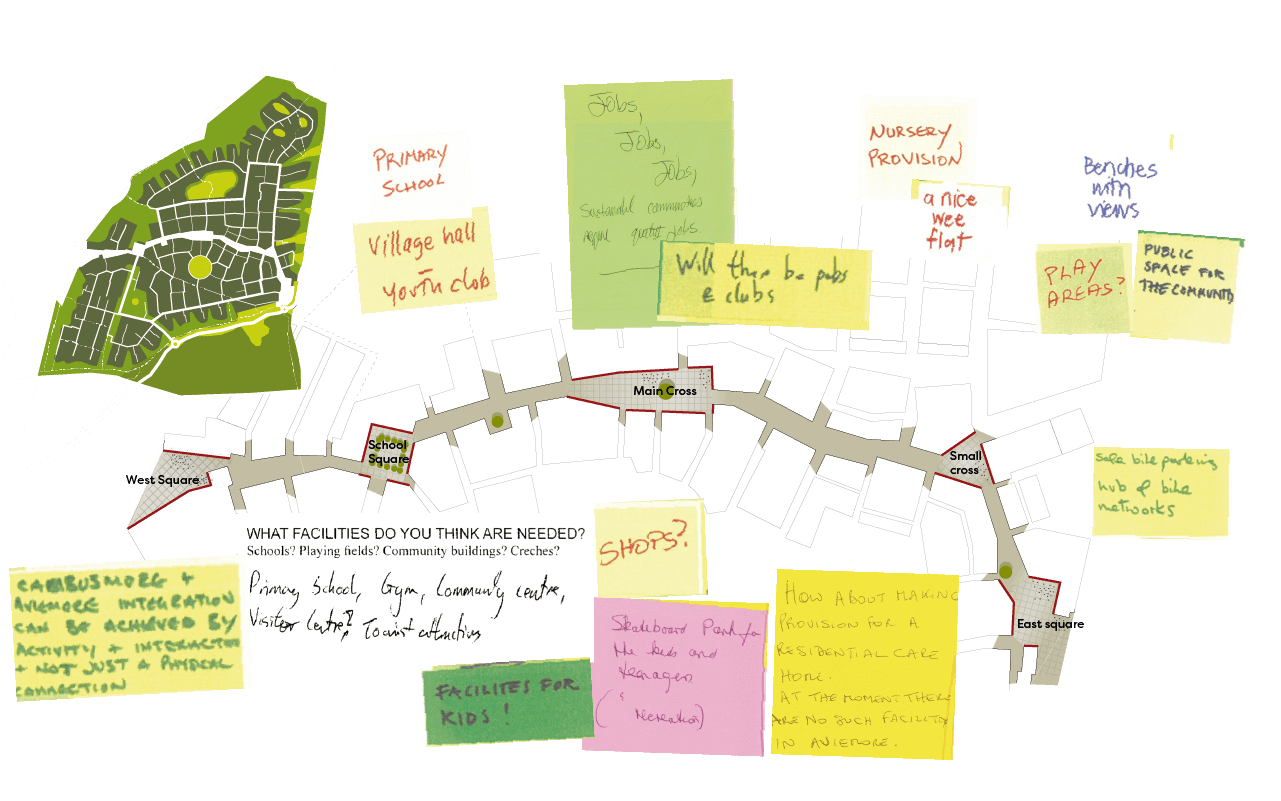 PRIMARY
SCHOOL
Village hall
youth club
Jobs,
Jobs,
Jobs,
Sustainable communities
require quality jobs.
Will there be pubs
& clubs
NURSERY
PROVISION
a nice
wee
flat
Benches
with
views
PLAY
AREAS?
PUBLIC
SPACE FOR
THE COMMUNITY
Main Cross
School
Square
West Square
Small
cross
East square
safe bike parking
hub of bike
networks
WHAT FACILITIES DO YOU THINK ARE NEEDED?
Schools? Playing fields? Community buildings? Creches?
Primary School, Gym, Community centre,
Visitor Centre?, Tourist attractions
SHOPS?
CAMBUSMORE +
AVIEMORE INTEGRATION
CAN BE ACHIEVED BY
ACTIVITY + INTERACTION
+ NOT JUST A PHYSICAL
CONNECTION
FACILITES FOR
KIDS!
Skateboard Park for
the kids and
teenagers
(recreation)
HOW ABOUT MAKING
PROVISION FOR A
RESIDENTIAL CARE
HOME.
AT THE MOMENT THERE
ARE NO SUCH FACILITY
IN AVIEMORE.